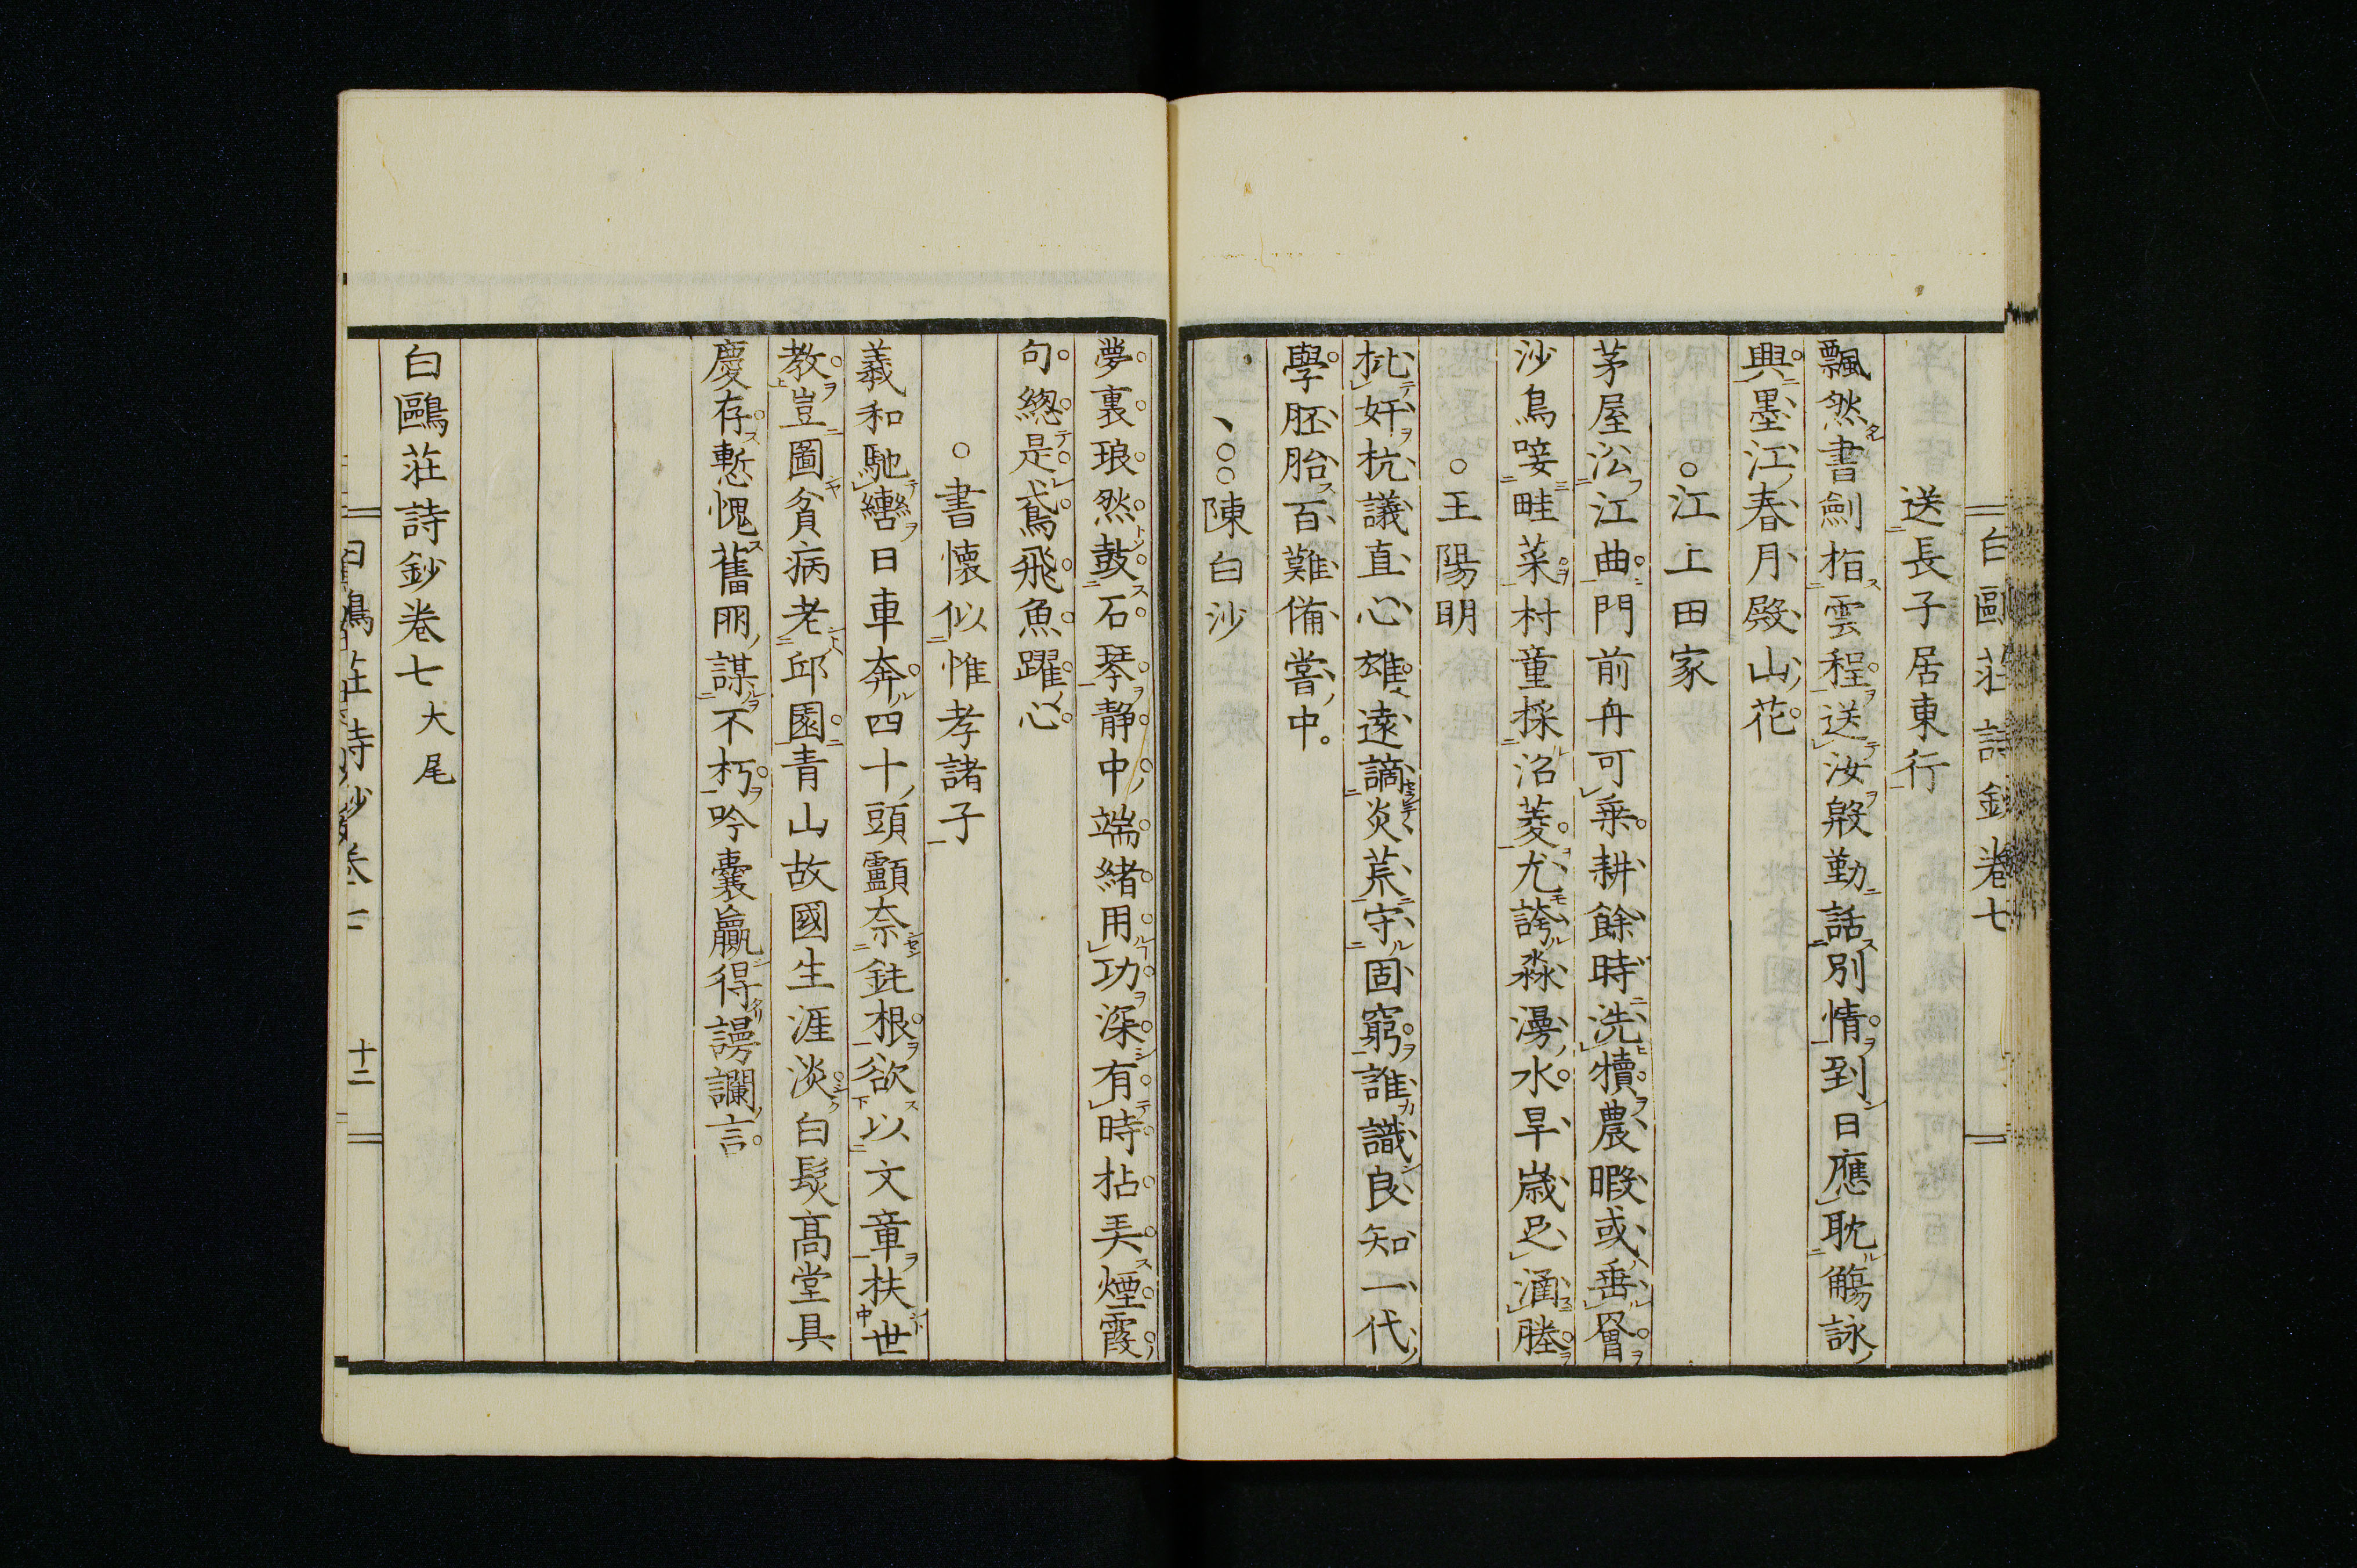 白鷗莊詩鈔卷七
送長子居東行
飄然書劍指雲程送汝殷勤話別情到日應耽觴詠
興墨江春月殿山花
○江上田家
茅屋㳂江曲門前舟可乗耕餘時洗犢農暇或垂罾
沙鳥唼畦菜村童採沼菱尤誇淼漫水旱歲足涵塍
○王陽明
批奸抗議直心雄遠謫炎荒守固窮誰識良知一代
學胚胎百難備嘗中
、○○陳白沙
夢裏琅然鼓石琴静中端緒用功深有時拈弄煙霞
句總是鳶飛魚躍心
○書懷似惟孝諸子
羲和馳轡日車奔四十頭顱奈鈍根欲以文章扶世
教豈圖貧病老邱園青山故國生涯淡白髮髙堂具
慶存慙愧舊朋謀不朽吟囊贏得謾讕言
白鷗莊詩鈔卷七大尾
十二